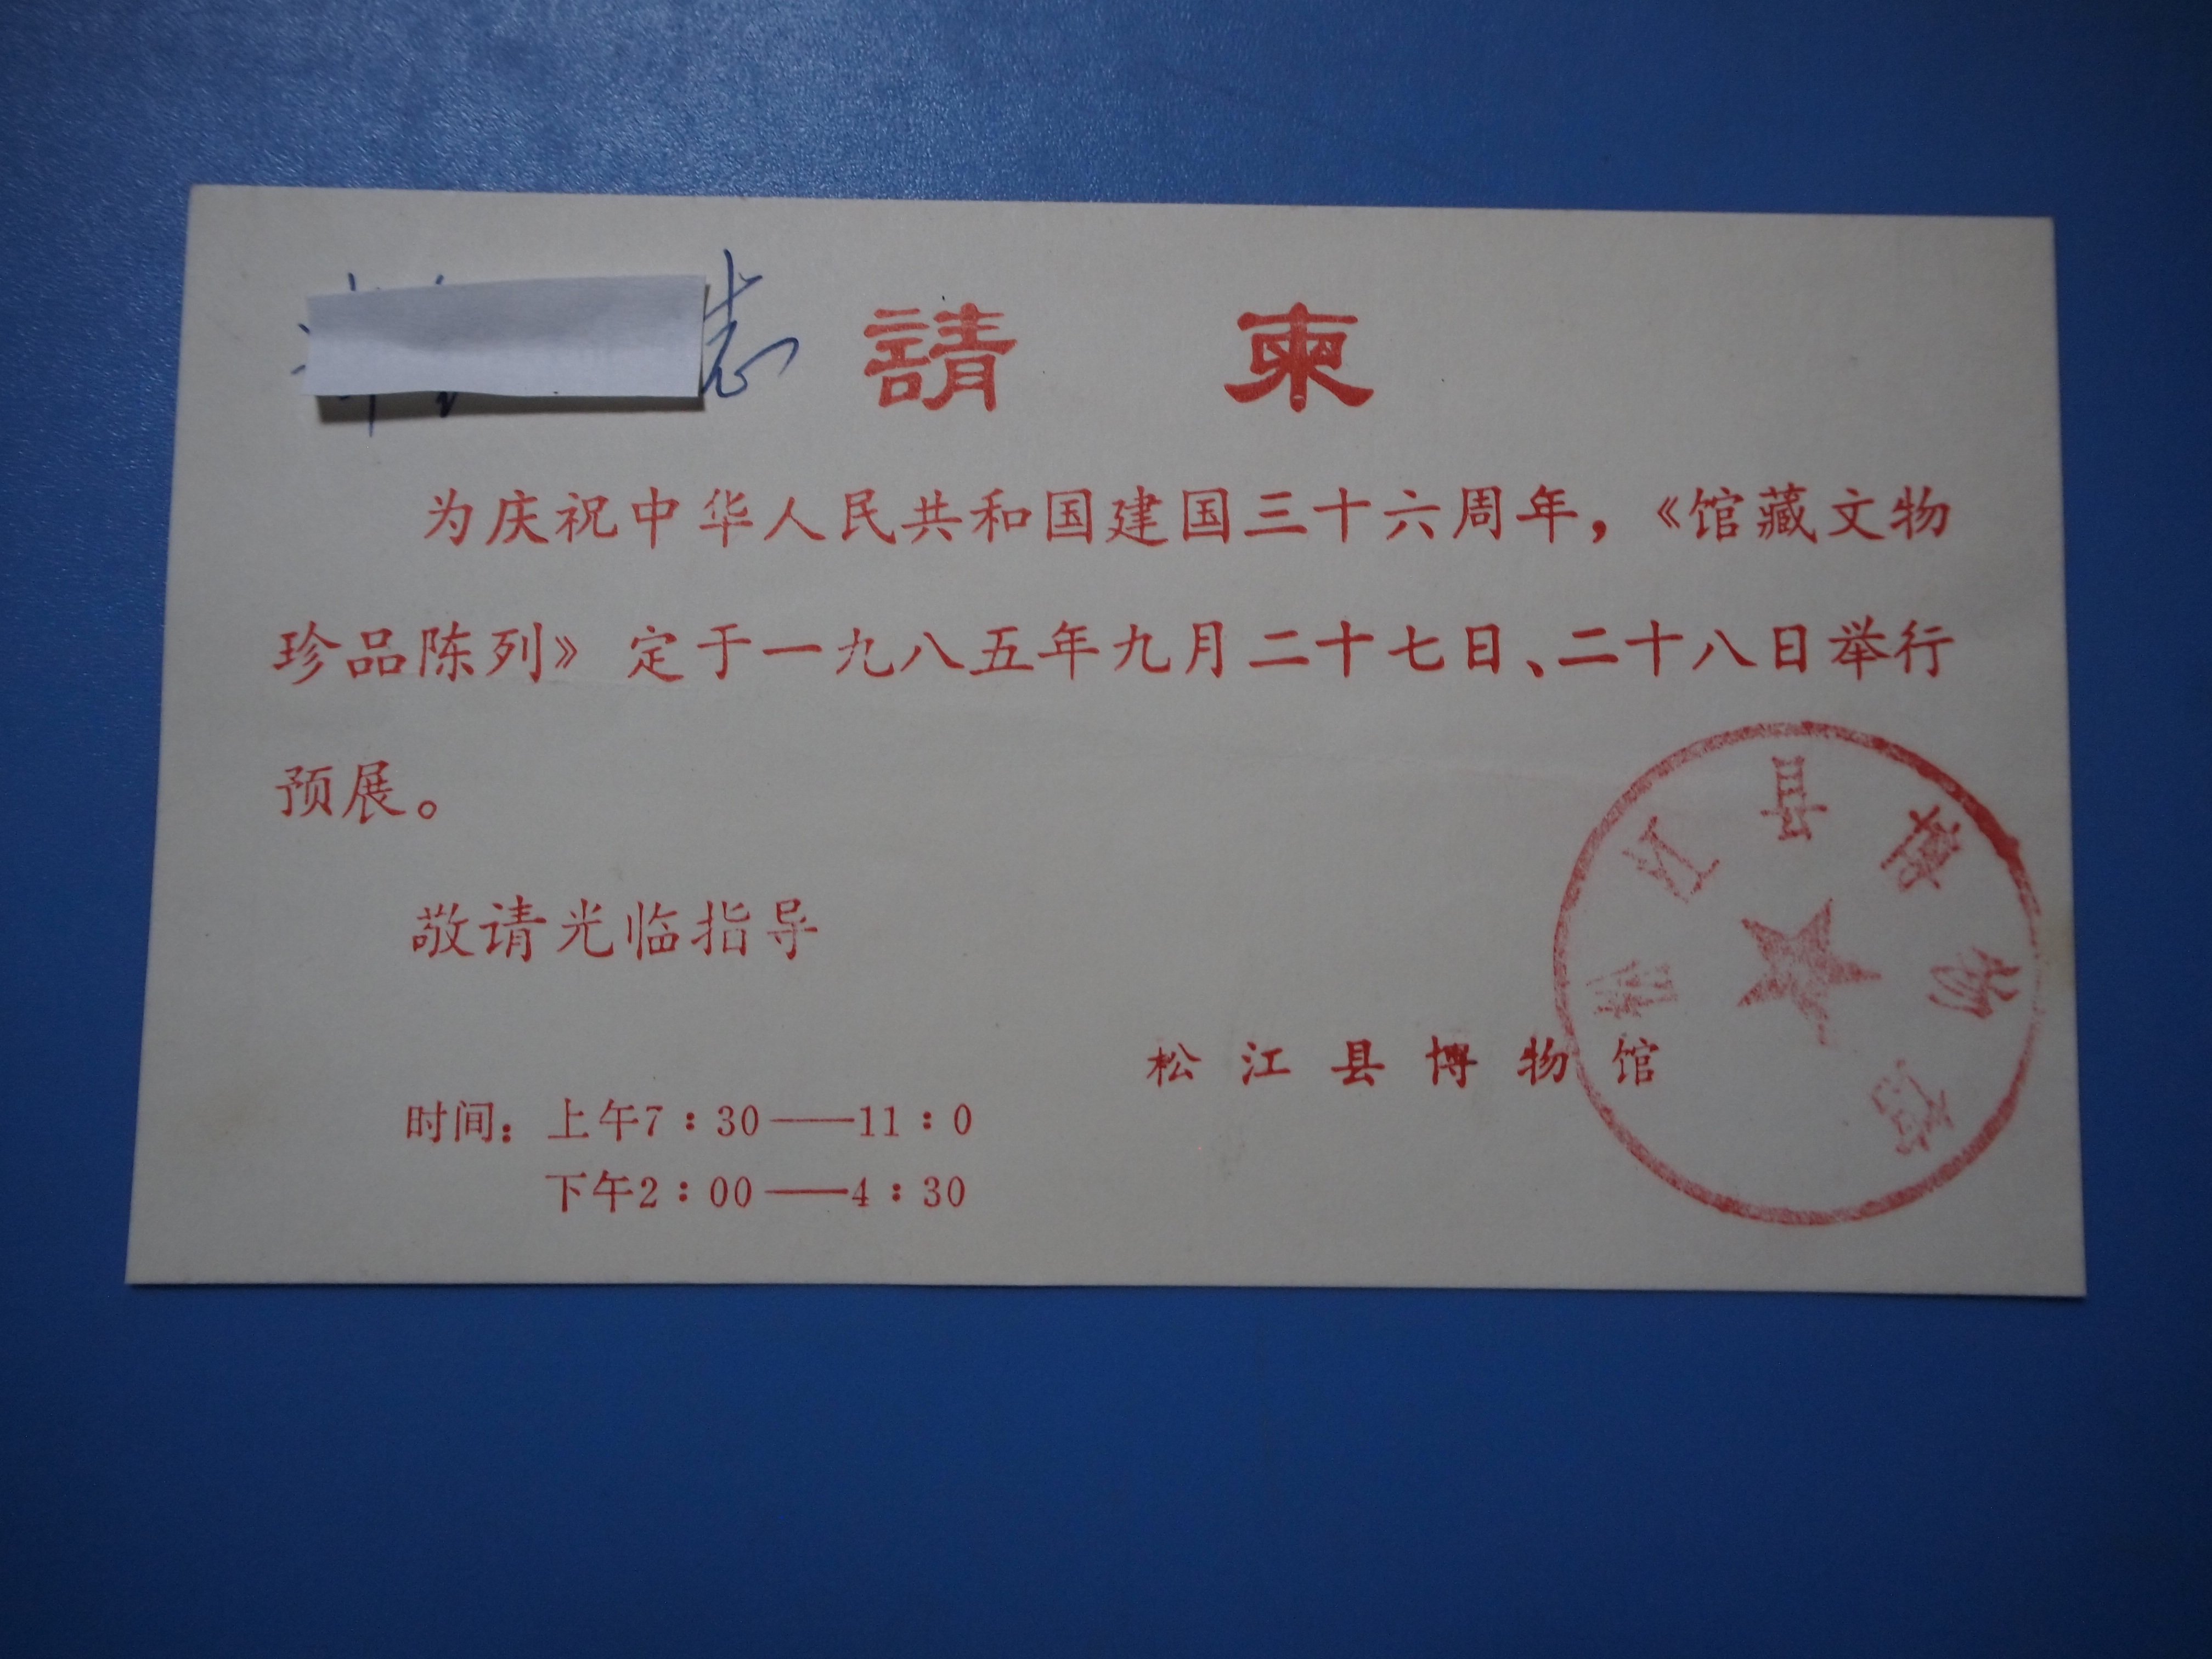 志
請 柬
为庆祝中华人民共和国建国三十六周年，《馆藏文物
珍品陈列》定于一九八五年九月二十七日、二十八日举行
预展。
敬请光临指导
松江县博物馆
时间：上午7：30——11：0
下午2：00——4：30
松江县博物馆